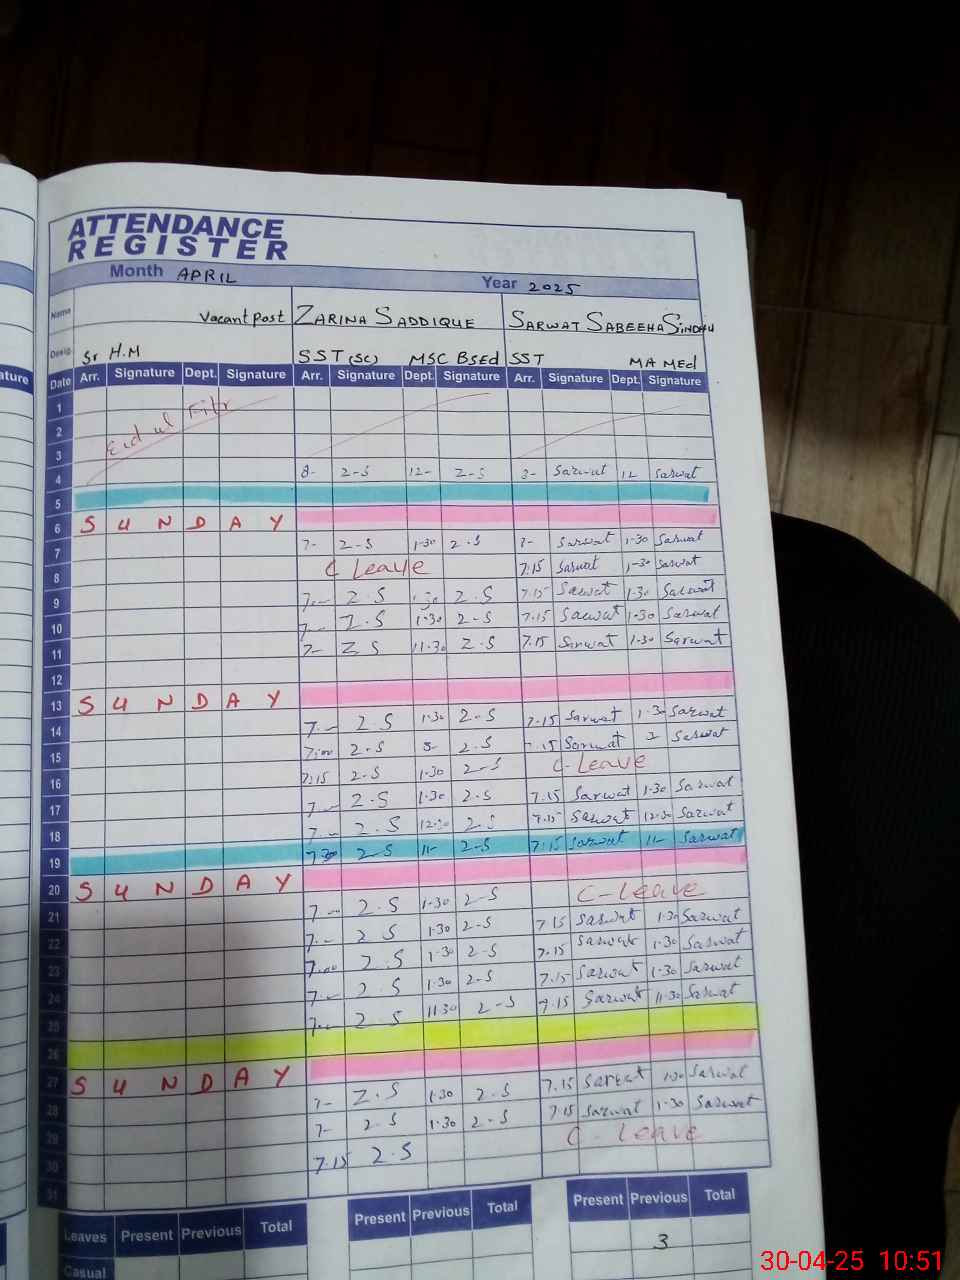 ature
ATTENDANCE
REGISTER
Month APRIL Year 2025
Name Vacant Post ZARINA SADDIQUE SARWAT SABEEHA SINDHU
Desig. Sr H.M SST (SC) MSC BSEd SST MA MEd
Date Arr. Signature Dept. Signature Arr. Signature Dept. Signature Arr. Signature Dept. Signature
1
2 Eid ul Fitr
3
4 8- Z-S 12- Z-S 8- Sarwat 12 Sarwat
5
6 SUNDAY
7 7- Z-S 1-30 Z-S 7- Sarwat 1-30 Sarwat
8 C Leave 7.15 Sarwat 1-30 Sarwat
9 7- Z.S 1.30 Z.S 7.15 Sarwat 1.30 Sarwat
10 7- Z.S 1.30 Z-S 7.15 Sarwat 1.30 Sarwat
11 7- Z S 11.30 Z.S 7.15 Sarwat 1.30 Sarwat
12
13 SUNDAY
14 7- Z.S 1.30 Z-S 7.15 Sarwat 1.30 Sarwat
15 7:00 Z-S Z-S .15 Sarwat 2 Sarwat
16 7:15 Z-S 1.30 Z-S C-Leave
17 7- Z.S 1.30 Z-S 7.15 Sarwat 1.30 Sarwat
18 7- Z.S 12.30 Z.S 7.15 Sarwat 12.30 Sarwat
19 7.30 Z-S 11- Z-S 7:15 Sarwat 11- Sarwat
20 SUNDAY
21 7- Z.S 1.30 Z-S C-Leave
22 7- Z S 1.30 Z-S 7.15 Sarwat 1.30 Sarwat
23 7.00 Z.S 1.30 Z-S 7.15 Sarwat 1.30 Sarwat
24 7- Z.S 1.30 Z-S 7.15 Sarwat 1.30 Sarwat
25 7- Z.S 11.30 Z-S 7.15 Sarwat 11.30 Sarwat
26
27 SUNDAY
28 7- Z.S 1.30 Z-S 7.15 Sarwat 1.30 Sarwat
29 7- Z.S 1.30 Z-S 7.15 Sarwat 1.30 Sarwat
30 7.15 Z.S C-Leave
31
Leaves Present Previous Total Present Previous Total Present Previous Total
Casual 3
30-04-25 10:51